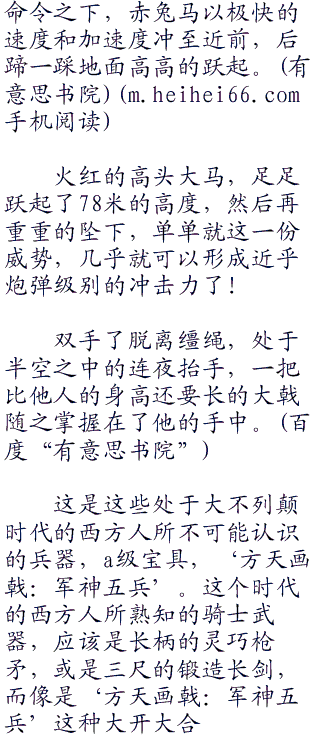 命令之下，赤兔马以极快的
速度和加速度冲至近前，后
蹄一踩地面高高的跃起。(有
意思书院)(m.heihei66.com
手机阅读)
火红的高头大马，足足
跃起了78米的高度，然后再
重重的坠下，单单就这一份
威势，几乎就可以形成近乎
炮弹级别的冲击力了！
双手了脱离缰绳，处于
半空之中的连夜抬手，一把
比他人的身高还要长的大戟
随之掌握在了他的手中。(百
度“有意思书院”)
这是这些处于大不列颠
时代的西方人所不可能认识
的兵器，a级宝具，‘方天画
戟：军神五兵’。这个时代
的西方人所熟知的骑士武
器，应该是长柄的灵巧枪
矛，或是三尺的锻造长剑，
而像是‘方天画戟：军神五
兵’这种大开大合